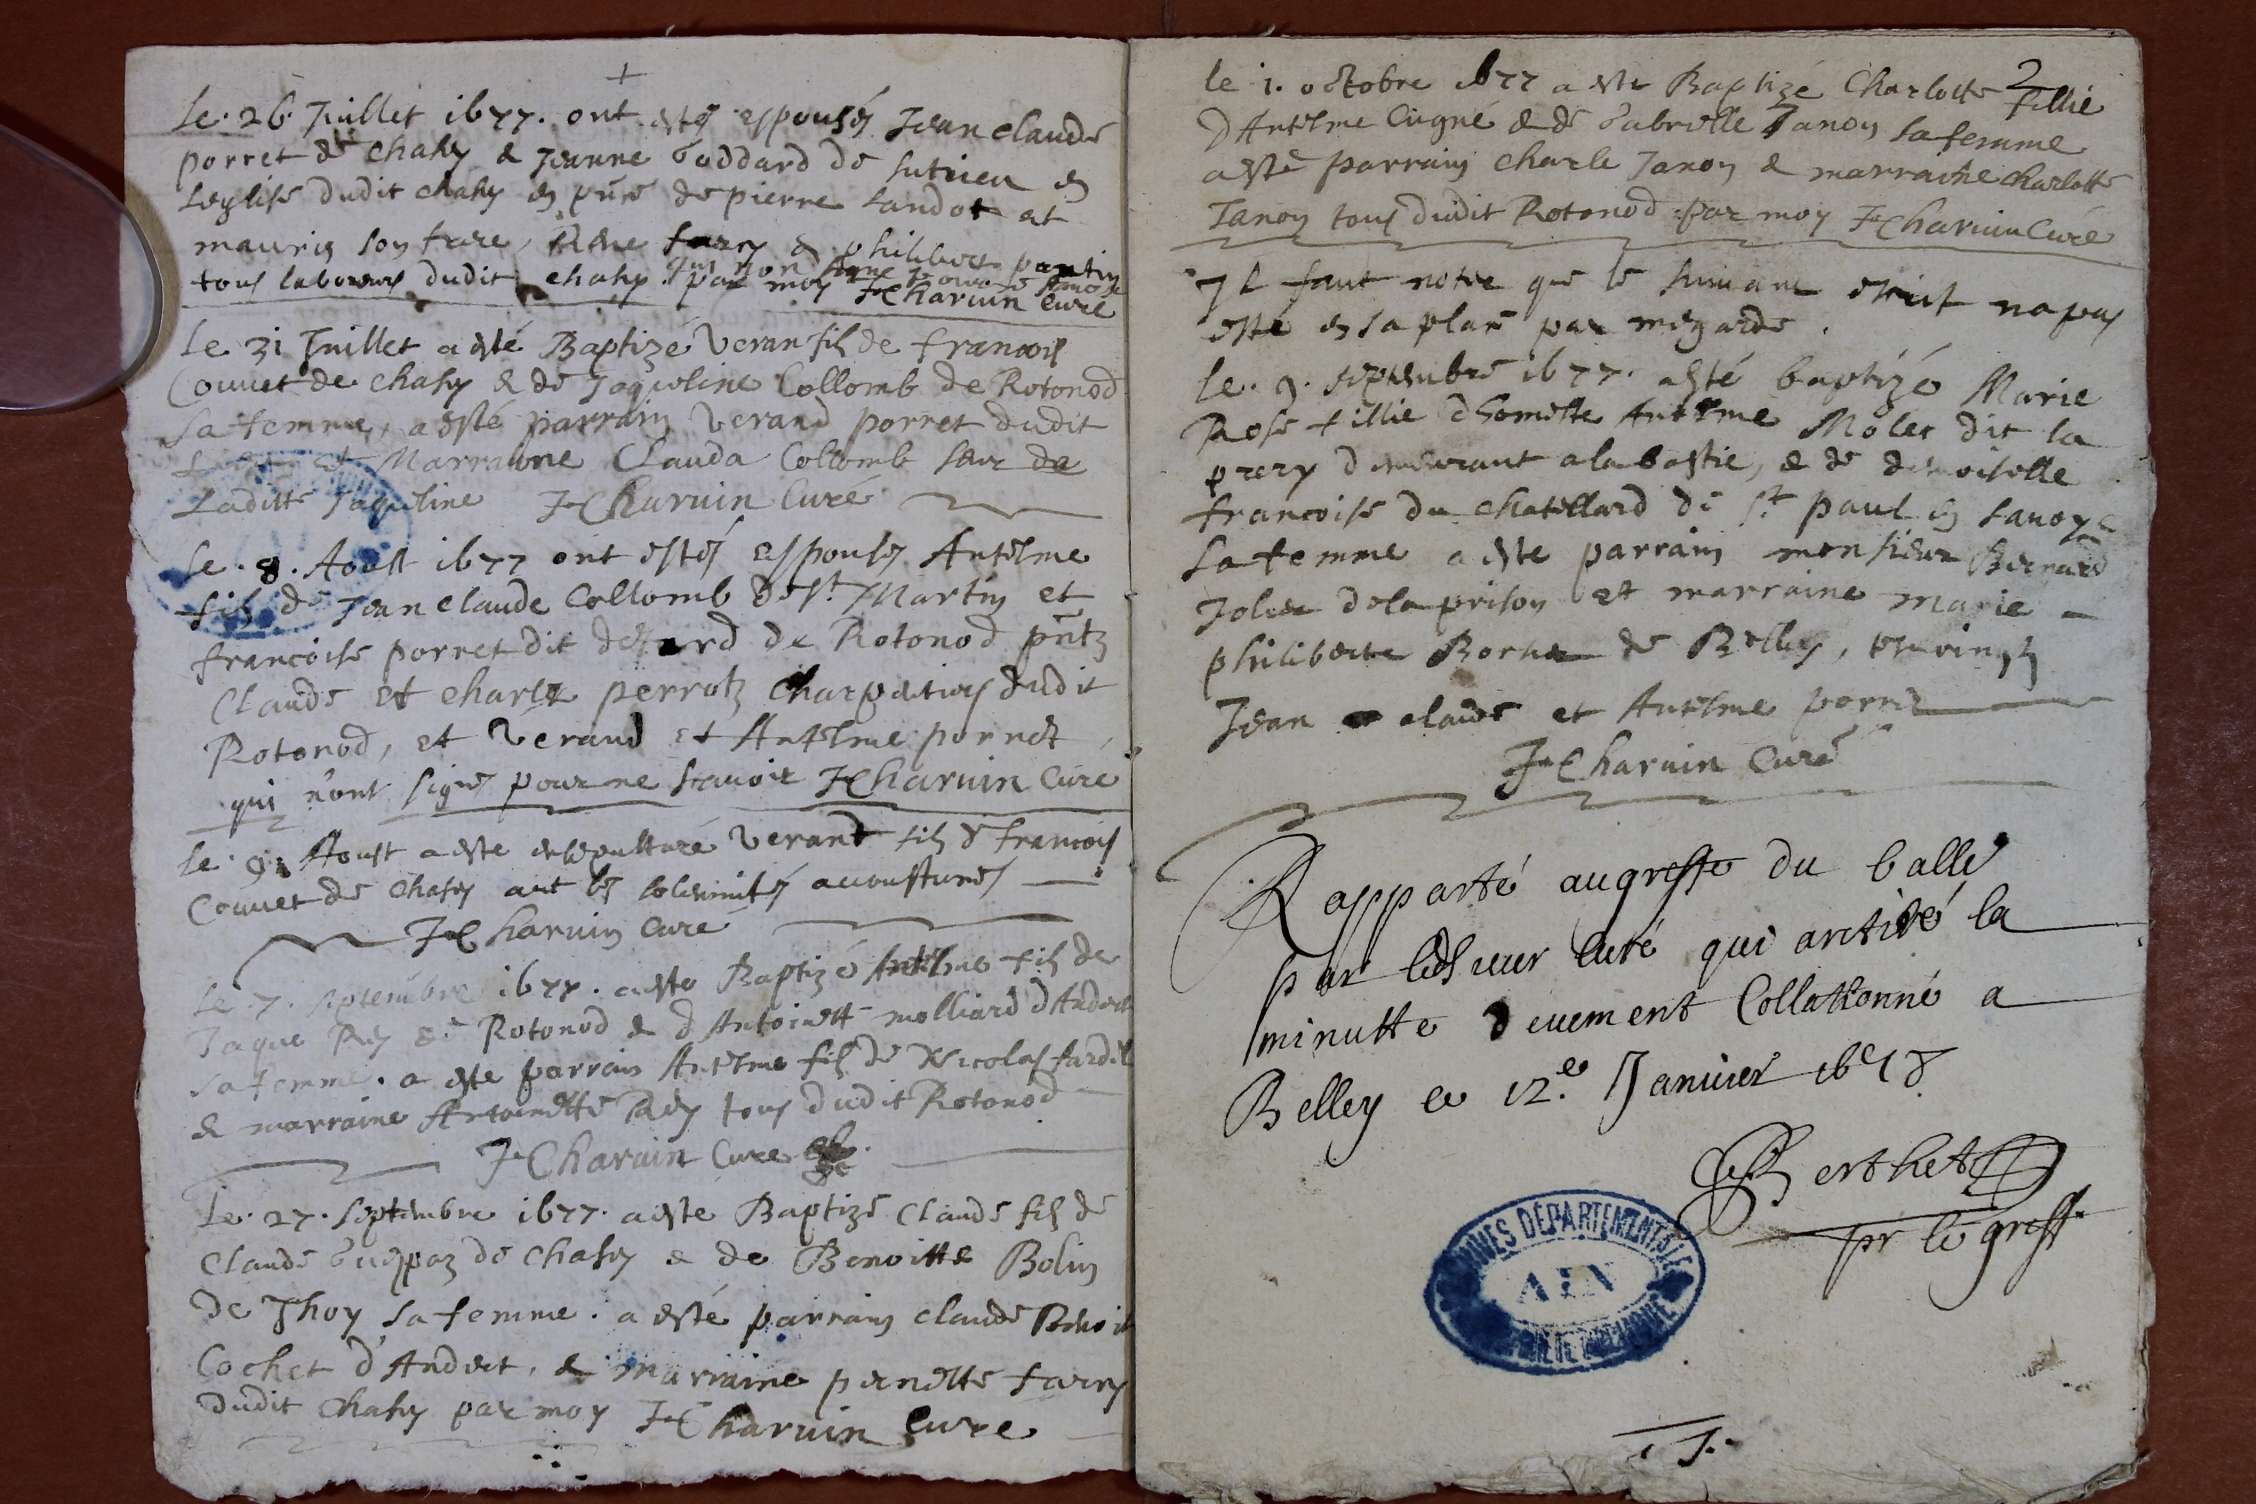 +
Le. 26. Juillet 1677. ont estés espousés Jean Claude
porret de chasey & Jeanne Goddard de sutrieu en
Leglise dudit chasey en pñce de pierre Landot et
mauris son frere, farcy & philibert pantin
tous laboureurs dudit chasey. qui non signe pour ne scavoir
par moy JCharvin Curé
Le 31 Juillet a esté Baptizé Veran fils de francois
Couvet de chasey & de Jaqueline Collomb de Rotonod
sa femme, a esté parrain Verand porret dudit
et Marraine Clauda Collomb seur de
Laditte Jaqueline JCharvin Curé
Le. 8. Aoust 1677 ont estés espousés Antelme
fils de Jean Claude Collomb de St. Martin et
francoise porret dit de Rotonod pñtz
Claude et charle perrotz Charpentiers dudit
Rotonod, et Verand et Antelme porret
qui n'ont signés pour ne scavoir JCharvin Curé
Le. 9. Aoust a este ensepulturé Verant fils de francois
Couvet de Chasey avec les solemnités accoustumés
JCharvin Curé
Le. 7. septembre 1677. a este Baptizé Antelme fils de
Jaque Rey de Rotonod & d'Antoinette molliard d'Andert
sa femme. a este parrain Antelme fils de Nicolas fardel
& marraine Antoinette Rey tous dudit Rotonod
JCharvin Curé
Le. 27. septembre 1677. a esté Baptizé Claude fils de
Claude de Chasey & de Benoitte Bolin
de Thoy sa femme. a esté parrain claude Benoit
Cochet d'Andert, & marraine pernette farcy
dudit Chasey par moy JCharvin Curé
2
le 1. octobre 1677 a este Baptizé Charlotte fillie
D'Antelme Cugné & de Gabrielle Janon sa femme
a esté parrain charle Janon & marraine charlotte
Janon tous dudit Rotonod par moy JCharvin Curé
Il faut noter que le suivant escrit na pas
esté en sa place par megarde.
Le. 9. septembre 1677. a esté baptizé Marie
Rose fillie dhoneste Antelme Molet dit la
prery demeurant a la bastie, & de demoiselle
francoise du chatellard de St. paul en savoye
sa femme a este parrain monsieur Bernard
Jolier de la prison et marraine marie
philiberte de Belley, presents
Jean claude et Antelme porret
JCharvin Curé
Rapparté au greffe du balle
par ledt sieur curé qui a retiré la
minutte deuement Collattonné a
Belley ce 12.e Janvier 1678
Berthet
pr le greff
ARCHIVES DÉPARTEMENTALES
AIN
PROPRIÉTÉ PUBLIQUE